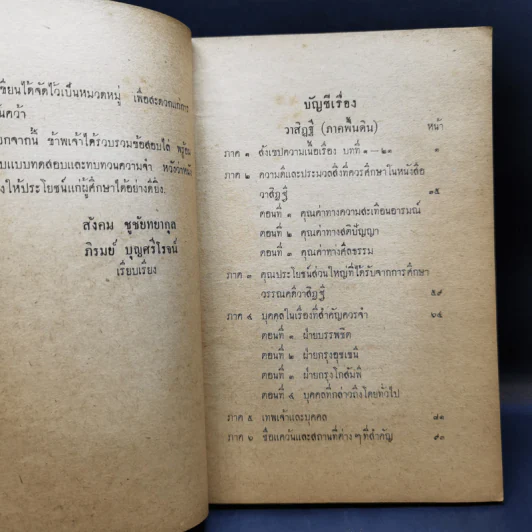 เขียนได้จัดไว้เป็นหมวดหมู่ เพื่อสะดวกแก่การ
นคว้า
อกจากนี้ ข้าพเจ้าได้รวบรวมข้อสอบไล่ พร้อม
บแบบทดสอบและทบทวนความจำ หวังว่าหนัง
งให้ประโยชน์แก่ผู้ศึกษาได้อย่างดียิ่ง.
สังคม ชูชัยทยากุล
ภิรมย์ บุญศรีโรจน์
เรียบเรียง
บัญชีเรื่อง
วาสิฏฐี (ภาคพื้นดิน) หน้า
ภาค ๑ สังเขปความเนื้อเรื่อง บทที่ ๑–๒๑ ๑
ภาค ๒ ความดีและประมวลสิ่งที่ควรศึกษาในหนังสือ
วาสิฏฐี ๓๕
ตอนที่ ๑ คุณค่าทางความสะเทือนอารมณ์
ตอนที่ ๒ คุณค่าทางสติปัญญา
ตอนที่ ๓ คุณค่าทางศีลธรรม
ภาค ๓ คุณประโยชน์ส่วนใหญ่ที่ได้รับจากการศึกษา
วรรณคดีวาสิฏฐี ๕๙
ภาค ๔ บุคคลในเรื่องที่สำคัญควรจำ ๖๔
ตอนที่ ๑ ฝ่ายบรรพชิต
ตอนที่ ๒ ฝ่ายกรุงอุชเชนี
ตอนที่ ๓ ฝ่ายกรุงโกสัมพี
ตอนที่ ๔ บุคคลที่กล่าวถึงโดยทั่วไป
ภาค ๕ เทพเจ้าและบุคคล ๘๑
ภาค ๖ ชื่อแคว้นและสถานที่ต่าง ๆ ที่สำคัญ ๙๓